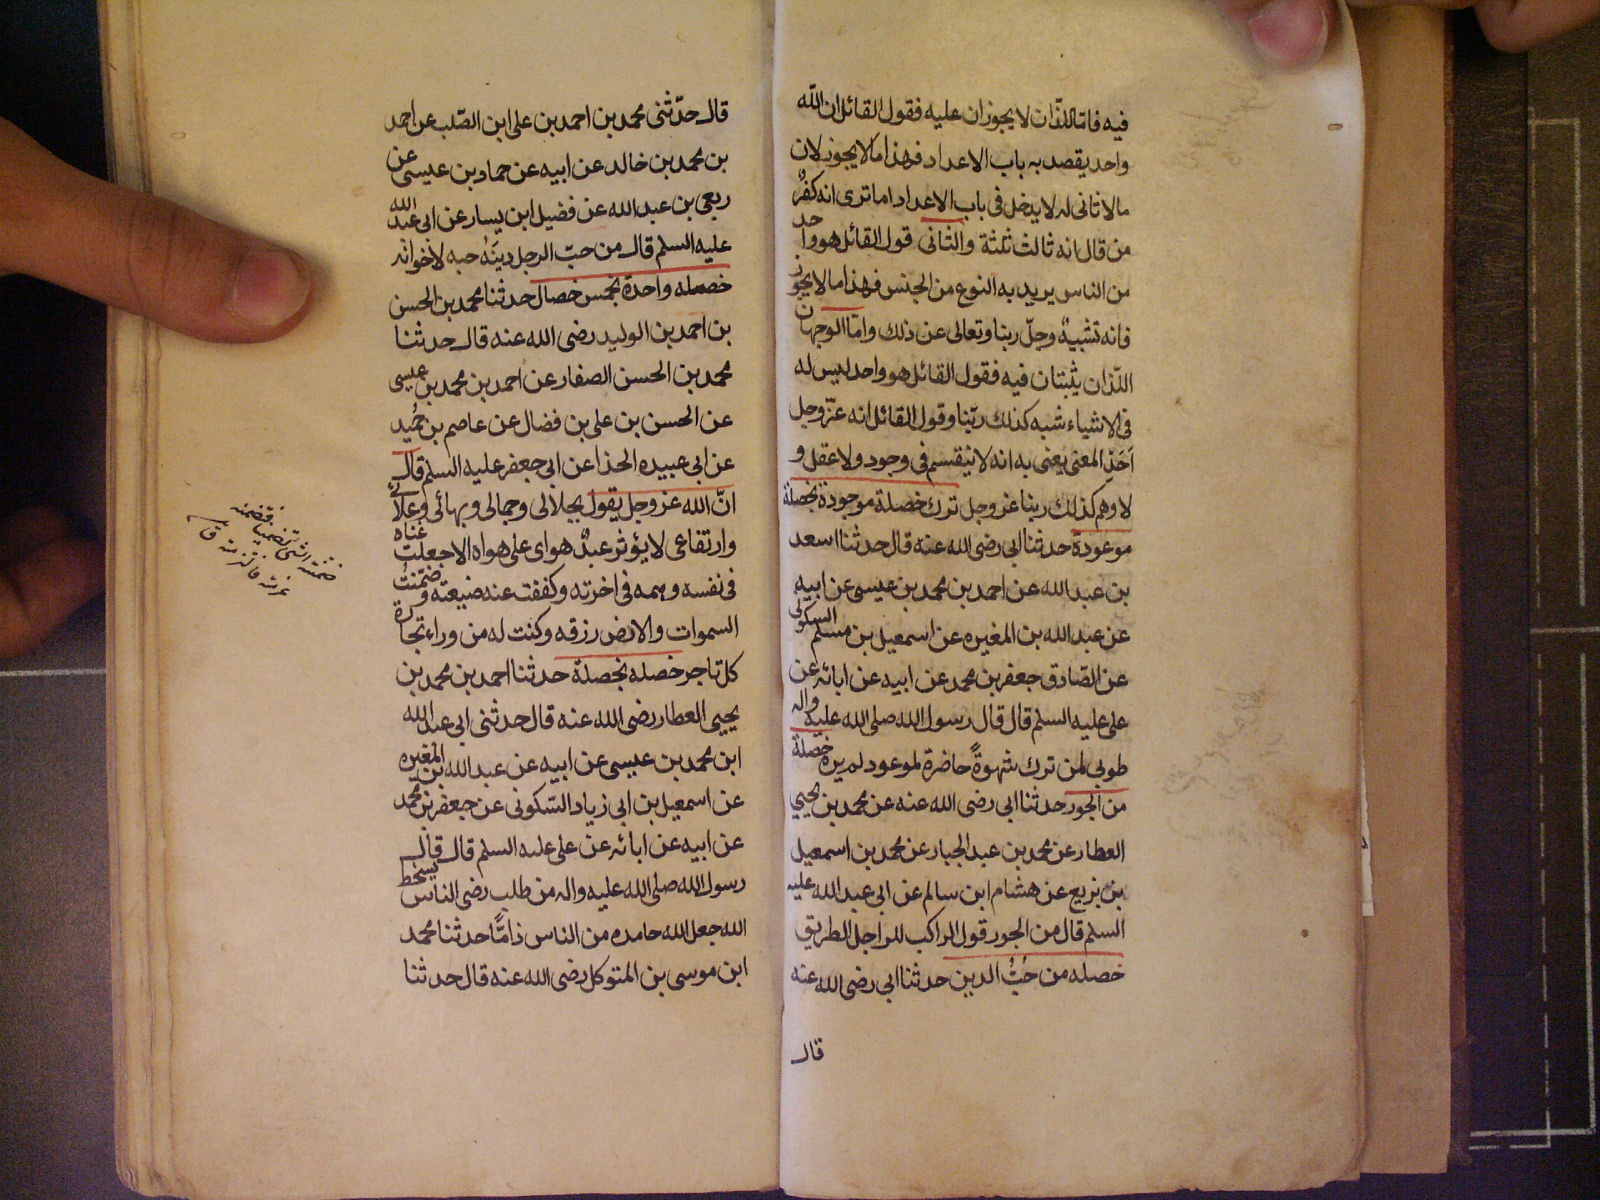 فيه فاما اللذان لا يجوزان عليه فقول القائل ان الله
واحد يقصد به باب الاعداد فهذا ما لا يجوز لان
ما لا ثانى له لا يدخل فى باب الاعداد اما ترى انه كفر
من قال انه ثالث ثلثة والثانى قول القائل هو واحد
من الناس يريد به النوع من الجنس فهذا ما لا يجوز
فانه تشبيه وجلّ ربنا وتعالى عن ذلك واما الوجهان
اللذان يثبتان فيه فقول القائل هو واحد ليس له
فى الاشياء شبه كذلك ربّنا وقول القائل انه عزّ وجل
احدى المعنى يعنى به انه لا ينقسم فى وجود ولا عقل و
لا وهم كذلك ربنا عز وجل ترك خصلة موجودة بخصلة
موعودة حدثنا ابى رضى الله عنه قال حدثنا سعد
بن عبد الله عن احمد بن محمد بن عيسى عن ابيه
عن عبد الله بن المغيره عن اسمعيل بن مسلم السكونى
عن الصّادق جعفر بن محمد عن ابيه عن ابائه عن
على عليه السلم قال قال رسول الله صلى الله عليه واله
طوبى لمن ترك شهوةً حاضرة لموعود لم يره خصلة
من الجور حدثنا ابى رضى الله عنه عن محمد بن يحيى
العطار عن محمد بن عبد الجبار عن محمد بن اسمعيل
بن بزيع عن هشام ابن سالم عن ابى عبد الله عليه
السلم قال من الجور قول الراكب للراجل الطريق
خصله من حُبّ الدين حدثنا ابى رضى الله عنه
قال
قال حدّثنى محمد بن احمد بن على ابن الصّلت عن احمد
بن محمد بن خالد عن ابيه عن حماد بن عيسى عن
ربعى بن عبد الله عن فضيل ابن يسار عن ابى عبد الله
عليه السلم قال من حبّ الرجل دينَهُ حبه لاخوانه
خصله واحدة بخمس خصال حدثنا محمد بن الحسن
بن احمد بن الوليد رضى الله عنه قال حدثنا
محمد بن الحسن الصفار عن احمد بن محمد بن عيسى
عن الحسن بن على بن فضال عن عاصم بن حُميد
عن ابى عبيده الحذا عن ابى جعفر عليه السلم قال
انّ الله عز وجل يقول بجلالى وجمالى وبهائى وعلائى
وارتفاعى لا يؤثر عبدٌ هواى على هواه الا جعلت غناه
فى نفسه وهمه فى اخرته وكففت عنه ضيعته وضمّنتُ
السموات والارض رزقه وكنت له من وراء تجارة
كل تاجر خصله بخصلة حدثنا احمد بن محمد بن
يحيى العطار رضى الله عنه قال حدثنى ابى عبد الله
ابن محمد بن عيسى عن ابيه عن عبد الله بن المغيره
عن اسمعيل بن ابى زياد السّكونى عن جعفر بن محمد
عن ابيه عن ابائه عن على عليه السلم قال قال
رسول الله صلى الله عليه واله من طلب رضى الناس بسخط
الله جعل الله حامده من الناس ذامًّا حدثنا محمد
ابن موسى بن المتوكل رضى الله عنه قال حدثنا
ضمنته الشئ تضمينا فتضمنه
عنى